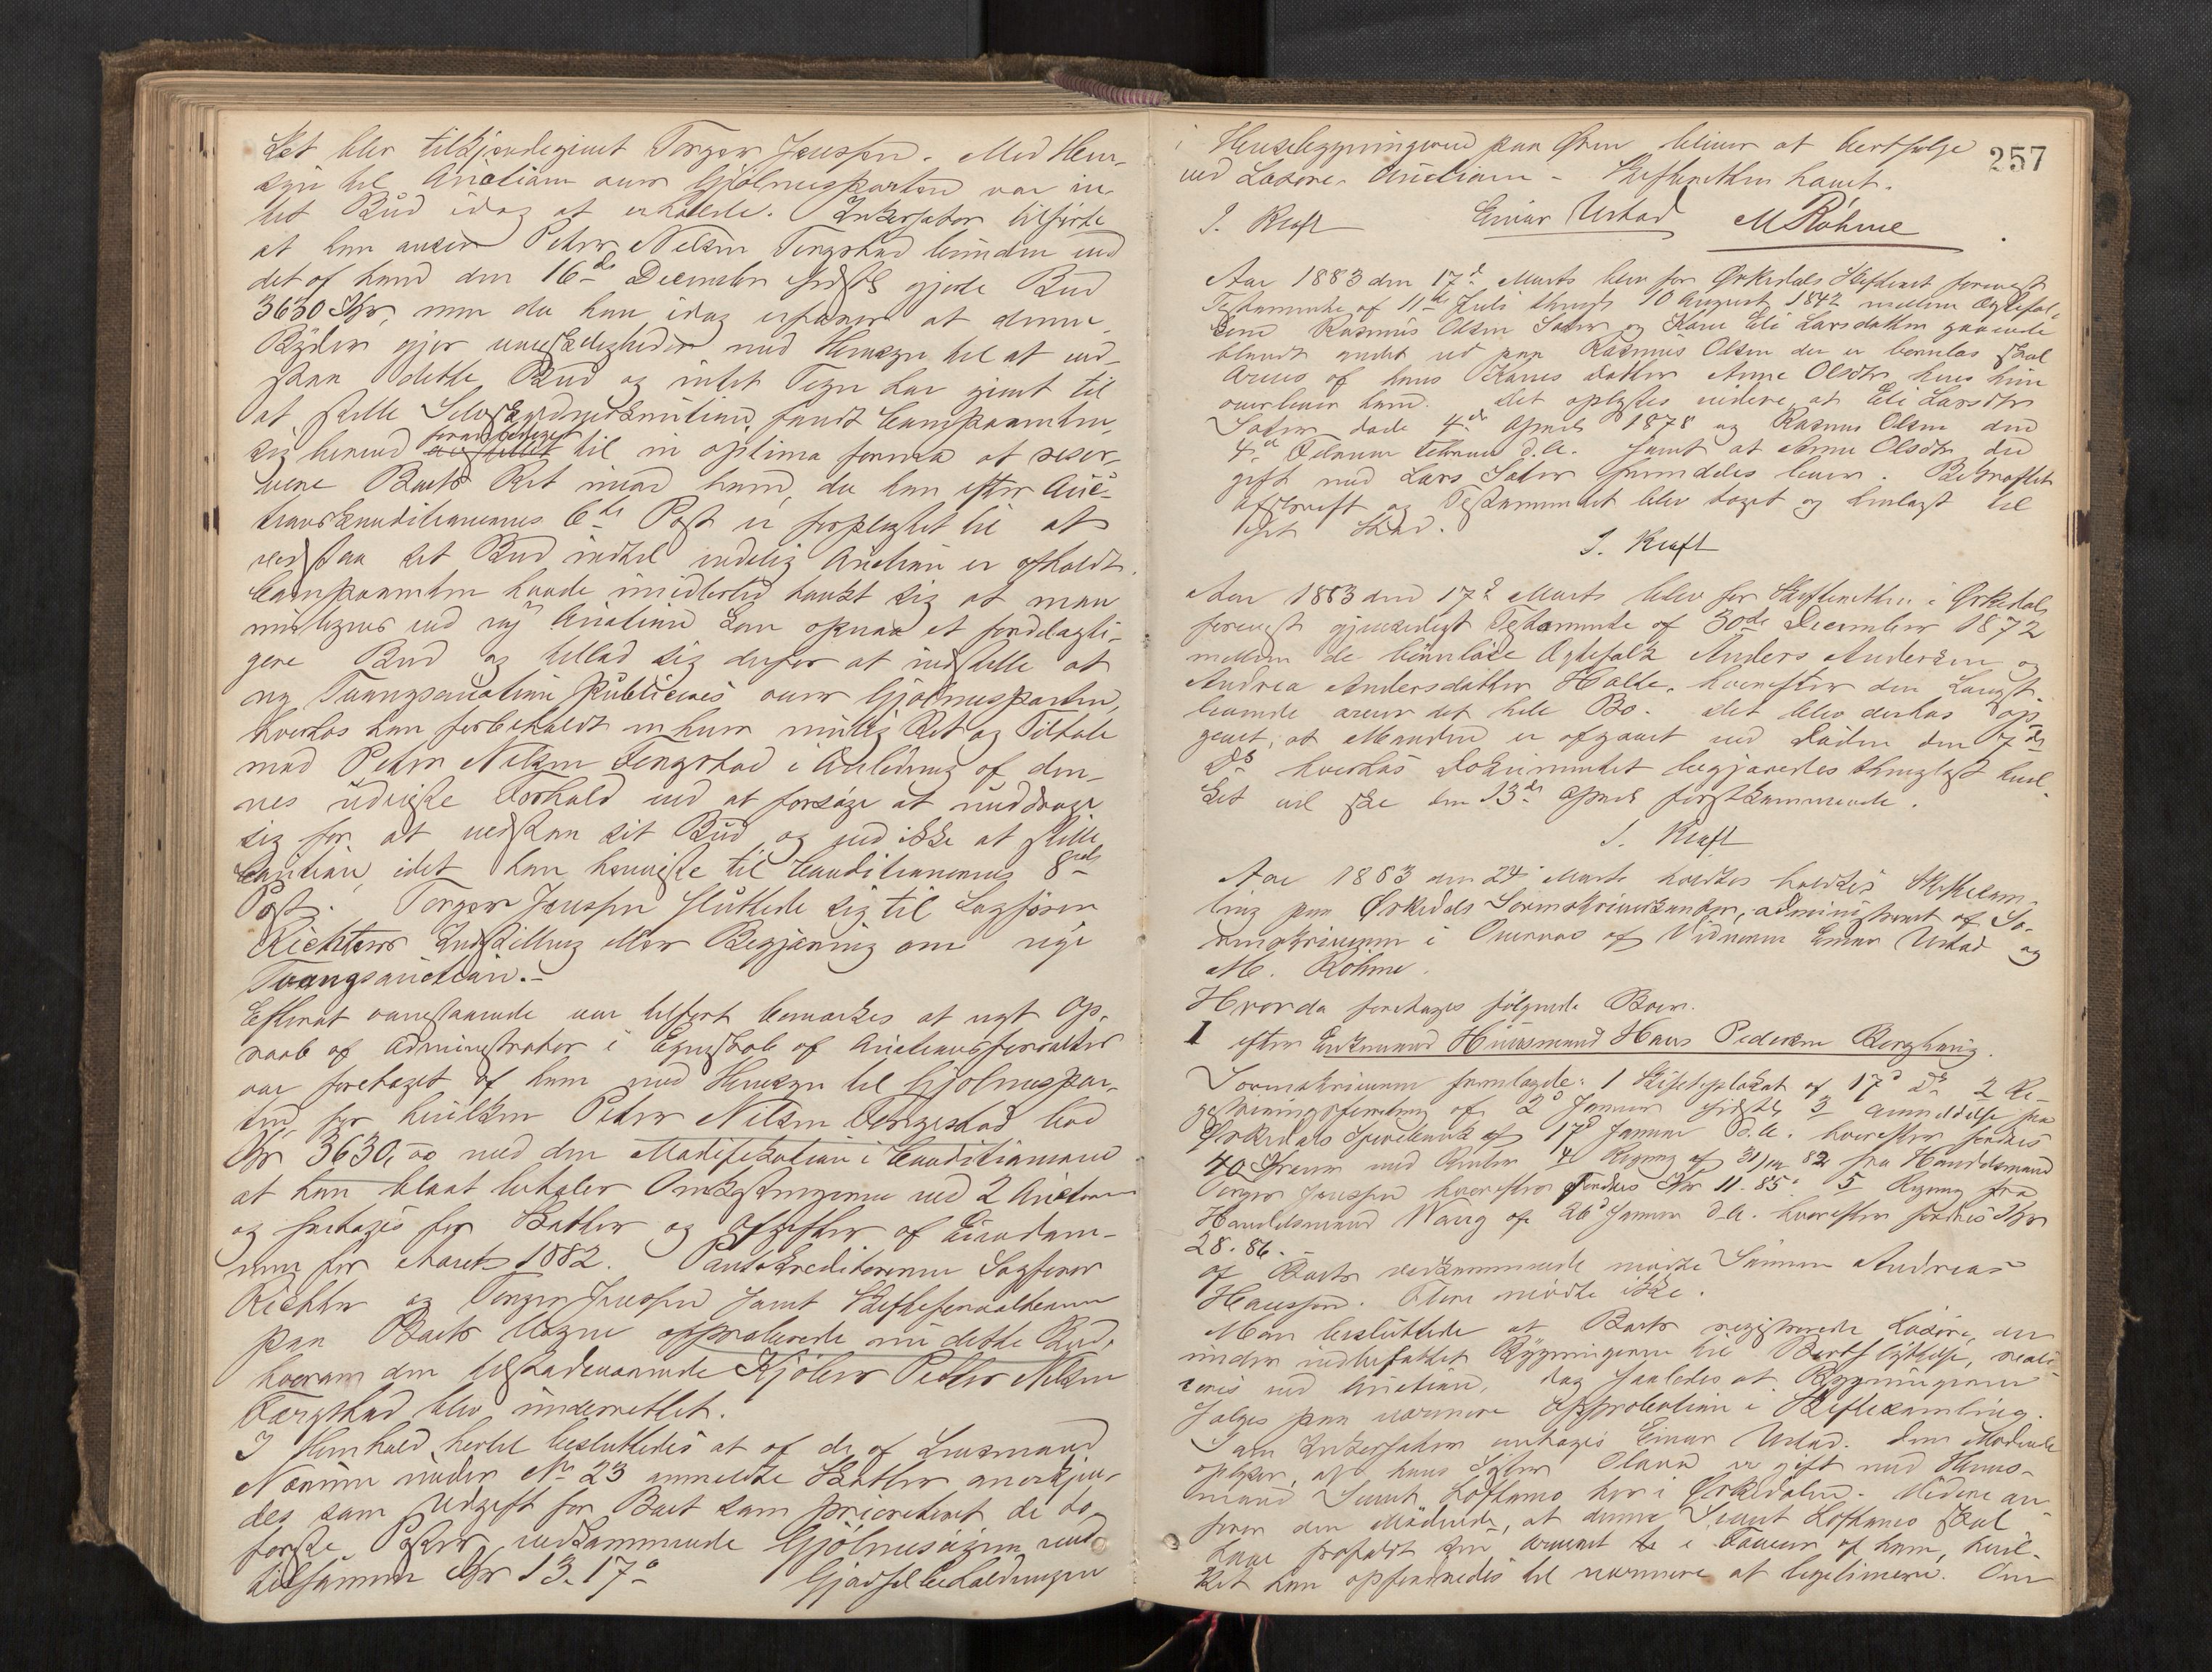 det blev tilkjendegivet Torger Jenssen. Med Hen-
syn til Auction over Gjölmesparten var in-
tet Bud idag at erholde. Inkassator tilførte
at han anser Peter Nilsen Tengstad bunden ved
det af ham den 16de December sidstl. gjorte Bud
3630 Kr, men da han idag erfarer at denne
Byder gjør vanskeligheder med Hensyn til at ved-
staa dette Bud og intet Tegn har givet til
at stille Selvskyldnerkaution, fandt Comparenten
sig herved foranlediget til in optima forma at reser-
vere Boets Ret imod ham, da han efter Auc-
tionskonditionernes 6te Post er forpligtet til at
vedstaa sit Bud indtil endelig Auction er afholdt.
Comparenten havde imidlertid tænkt sig at man
muligens ved ny Auction kan opnaa et fordelagti-
gere Bud og tillod sig derfor at indstille at
ny Tvangsauction publiceres over Gjölmesparten,
hvorhos han forbeholdt enhver mulig Ret og Tiltale
mod Peter Nilsen Tengstad i Anledning af den-
nes udviste Forhold ved at forsøge at unddrage
sig for at vedstaa sit Bud og ved ikke at stille
Caution, idet han henviste til Conditionernes 8de
Post. Torger Jenssen sluttede sig til Sagfører
Richters Indstilling eller Begjæring om nye
Tvangsauction.-
Efterat ovenstaaende var tilført bemærkes at nyt Op-
raab af Administrator i Egenskab af Auctionsforvalter
var foretaget af ham med Hensyn til Gjölmespar-
ten, for hvilken Peter Nilsen Tengstad bød
Kr 3630,00 med den Modifikation i Conditionerne
at han blot betaler Omkostningerne ved 2 Auctioner
og fritages for Skatter og Afgifter af Eiendom-
men for Aaret 1882. Pantekreditorerne Sagfører
Richter og Torger Jenssen samt Skifteforvalteren
paa Boets Vegne approberede nu dette Bud,
hvorom den tilstedeværende Kjöber Peter Nilsen
Tengstad blev underrettet.
I Henhold hertil besluttedes at af de af Lensmand
Nærum under No 23 anmeldte Skatter anerkjen-
des som Udgift for Boet som prioriteret de to
første Poster vedkommende Gjölmesøigen med
tilsammen Kr 13.17.
Gjødselbeholdningen
257
i Husebygningerne paa Øren bliver at bortsælge
ved Løsøre-Auction - Skifteretten hævet.
I. Kraft Einar Ustad M Röhme
Aar 1883 den 17de Marts blev for Ørkedals Skifteret forevist
Testamente af 11te Juli thingl. 10 August 1842 mellem Ægtefol-
kene Rasmus Olsen Sæter og Kone Eli Larsdatter gaaende
blandt andet ud paa Rasmus Olsen der er barnløs skal
arves af hans Kones Datter Anne Olsdtr hvis hun
overlever ham. Det oplystes videre at Eli Larsdtr
Sæter døde 4de April 1878 og Rasmus Olsen den
4de Februar d.A. samt at Anne Olsdtr der
gift med Lars Sæter fremdeles lever. Bekræftet
Afskrift af Testamentet blev taget og henlagt til
I. Kraft
Aar 1883 den 17de Marts blev for Skifteretten i Ørkedal
forevist gjensidigt Testamente af 30de December 1872
mellem de barnløse Ægtefolk Anders Andersen og
Andrea Andersdatter Holte, hvorefter den Længst-
levende arver det hele Bo. Det blev derhos op-
givet, at Manden er afgaaet ved Døden den 7de
ds hvorhos Dokumentet begjæredes thinglyst hvil-
ket vil ske den 13de April førstkommende.
I. Kraft
Aar 1883 den 24 Marts holdtes holdtes Skiftesam-
ling paa Ørkedals Sorenskriverkontor, administreret af So-
renskriveren i Overvær af Vidnerne Einar Ustad og
M. Röhme.
Hvorda foretages følgende Boer.
I efter Enkemand Huusmand Hans Pedersen Berghaug.
Sorenskriveren fremlagde: 1 Skifteplakat af 17de Ds 2 Re-
gistreringsforretning af 2de Januar sidstl. 3 Anmeldelse fra
Ørkedals Sparebank af 17de Januar d.A. hvorefter fordres
40 Kroner med Renter 4 Regning af 31/12 82 fra Handelsmand
Torger Jenssen hvorefter fordres Kr 11.85. 5 Regning fra
Handelsmand Wang af 26de Januar d.A. hvorefter fordres Kr
28.86.-
Af Boets vedkommende mødte Sønnen Andreas
Hanssen. Flere mødte ikke.
Man besluttede at Boets registrerede Løsøre, der-
under indbefattet Bygningerne til Bortflyttelse, reali-
seres ved Auction, dog saaledes at Bygningerne
sælges paa nærmere Approbation i Skiftesamling.
Som Inkassator antages Einar Ustad. Den Mødende
oplyser, at hans Søster Olava er gift med Huus-
mand Sivert Loftamo her i Ørkedalen. Videre an-
fører den Mødende, at denne Sivert Loftamo skal
have frafaldt sin Arveret i Faveur af ham, hvil-
ket han opfordredes til nærmere at legitimere. Om